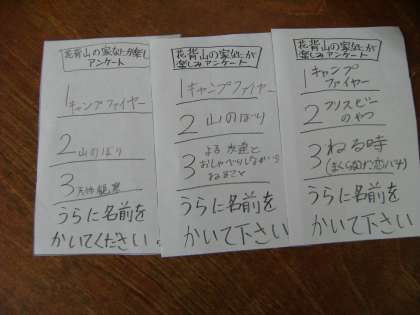 花背山の家なにが楽し
アンケート
1キャンプファイヤー
2山のぼり
3天体観測
うらに名前を
かいてください。
花背山の家なにが
楽しみアンケート
1キャンプファイヤー
2山のぼり
3よる友達と
おしゃべりしながら
ねること
うらに名前を
かいて下さい
花背山の家なにが
楽しみアンケート
1キャンプ
ファイヤー
2フリスビー
のやつ
3ねる時
(まくらなげ恋バナ)
うらに名前を
かいて下さい